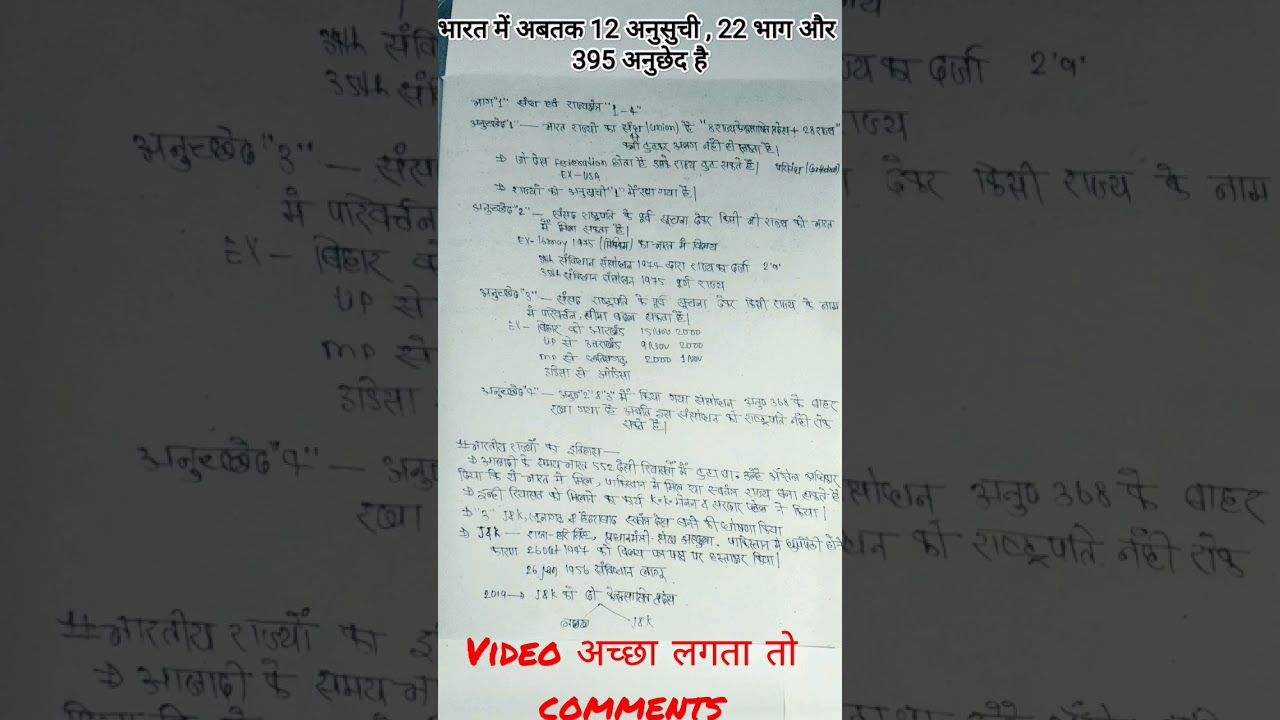 भारत में अबतक 12 अनुसुची , 22 भाग और
395 अनुछेद है
भाग"1" संघ एवं राज्यक्षेत्र "1-4"
अनुच्छेद"1" — भारत राज्यों का संघ (Union) है "8 + 28 राज्य"
कभी टुटकर अलग नहीं हो सकता है|
→ जो देश Federation होता है उसके राज्य टुट सकते हैं| परिसंघ
EX-USA
→ राज्यों को अनुसूची "1" में रखा गया है|
अनुच्छेद"2" — संसद राष्ट्रपति के पूर्व सूचना देकर किसी भी राज्य को भारत
में मिला सकता है|
EX- 16 may 1975 (सिक्किम) का भारत में विलय
संविधान संशोधन 1974 द्वारा राज्य का दर्जा 2'a'
संविधान संशोधन 1975 पूर्ण राज्य
अनुच्छेद"3" — संसद राष्ट्रपति के पूर्व सूचना देकर किसी राज्य के नाम
में परिवर्त्तन, सीमा बदल सकता है|
EX- बिहार को झारखंड 15 Nov 2000
UP से उत्तराखंड 9 Nov 2000
MP से छत्तिसगढ़ 2000 1 Nov
उडिसा से ओडिसा
अनुच्छेद"4" — अनु० "2" & "3" में किया गया संसोधन अनु० 368 के बाहर
रखा गया है अर्थात इस संसोधन को राष्ट्रपति नहीं रोक
सकते हैं|
#भारतीय राज्यों का इतिहास—
→ आजादी के समय भारत 552 देसी रियासतों में टुटा था. उन्हें अधिकार
दिया कि वे भारत में मिले, पाकिस्तान में मिले या स्वतंत्र राज्य बना सकते है
→ इनकी रियासत को मिलाने का कार्य V.K. मेनन व सरदार पटेल ने किया|
→ "3" J&K, जुनागढ़ & हैदराबाद स्वतंत्र देश बनने की घोषणा किया
→ J&K — राजा-हरि सिंह, प्रधानमंत्री-शेख अब्दुल्ला. पाकिस्तान में घुसपैठी होने
कारण 26 Oct 1947 को विलय पत्र पर हस्ताक्षर किया|
26 Jan 1956 संविधान लागू
2019 → J&K को दो केन्द्रशासित प्रदेश
लद्दाख J&K
VIDEO अच्छा लगता तो
COMMENTS